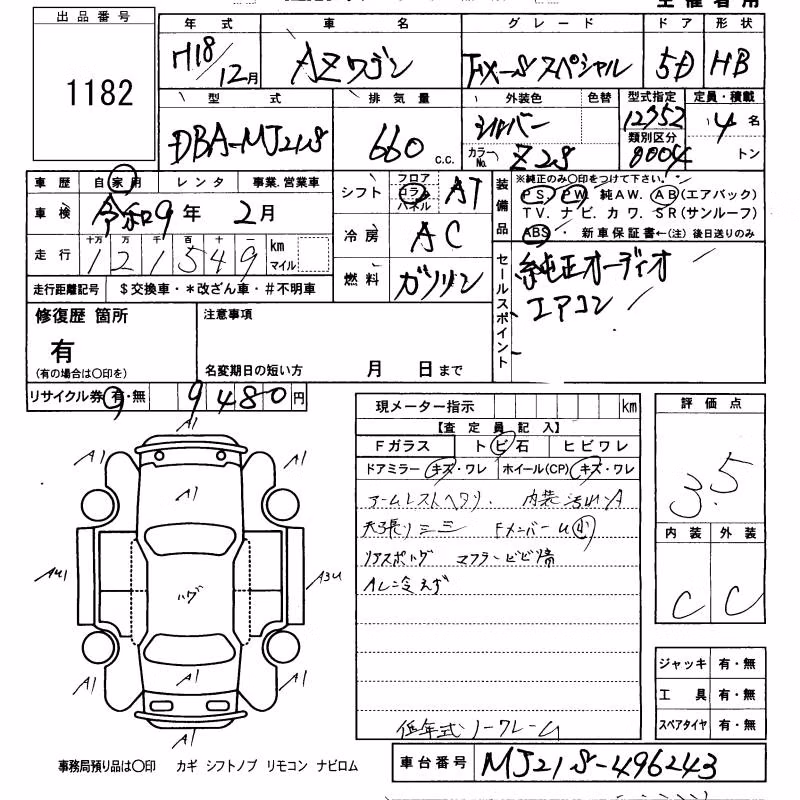 主催者用
出品番号 1182
年式 車名 グレード ドア 形状
H18/12月 AZワゴン FX-Sスペシャル 5D HB
型式 排気量 外装色 色替 型式指定 定員・積載
DBA-MJ21S 660 C.C. シルバー 12352 4名
カラーNo. Z2S 類別区分 0004 トン
車歴 自家用 レンタ 事業.営業車
車検 令和9年 2月
走行 十万 万 千 百 十 一
121549 km マイル
走行距離記号 $交換車・*改ざん車・#不明車
シフト フロア コラム パネル AT
冷房 AC
燃料 ガソリン
装備品 ※純正のみ○印をつけて下さい。
PS. PW 純AW. AB(エアバック)
TV. ナビ. カワ. SR(サンルーフ)
ABS・ 新車保証書←(注) 後日送りのみ
セールスポイント
純正オーディオ
エアコン
修復歴 箇所
有
(有の場合は○印を)
注意事項
名変期日の短い方 月 日まで
リサイクル券 有・無 9480円
現メーター指示 km
【査定員記入】
Fガラス トビ石 ヒビワレ
ドアミラー キズ・ワレ ホイール(CP) キズ・ワレ
アームレストヘタリ. 内装汚レA
天張リシミ FメンバーU小
リアスポハグ マフラービビ音
ACレイ冷えず
低年式ノークレーム
評価点
3.5
内装 外装
C C
A1
A1 A1
A1
A1 A1
A4U1 ハゲ A3U
A1 A1
A1
A1 A1
A1
ジャッキ 有・無
工具 有・無
スペアタイヤ 有・無
事務局預り品は○印 カギ シフトノブ リモコン ナビロム
車台番号 MJ21S-496243